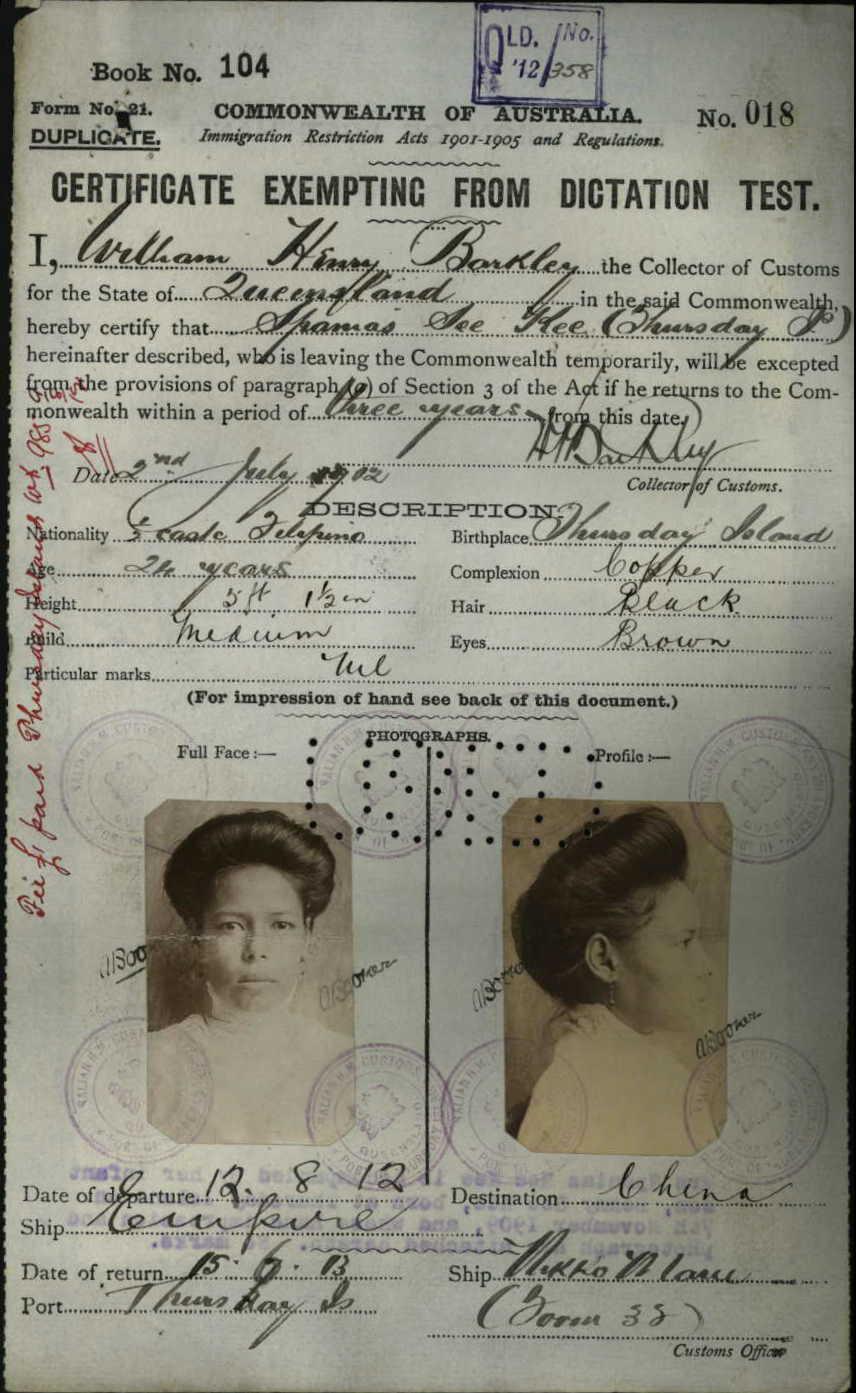 QLD. No.
'12/358
Book No. 104
Form No. 21.
COMMONWEALTH OF AUSTRALIA.
No. 018
DUPLICATE.
Immigration Restriction Acts 1901-1905 and Regulations.
CERTIFICATE EXEMPTING FROM DICTATION TEST.
I, William Henry Barkley the Collector of Customs
for the State of Queensland in the said Commonwealth,
hereby certify that See Kee (Thursday I)
hereinafter described, who is leaving the Commonwealth temporarily, will be excepted
from the provisions of paragraph (a) of Section 3 of the Act if he returns to the Com-
monwealth within a period of three years from this date.
WHBarkley
Date 2nd July 1912
Collector of Customs.
DESCRIPTION.
Nationality ½ caste
Birthplace Thursday Island
Age 24 years
Complexion Copper
Height 5 ft 1½ in
Hair Black
Build Medium
Eyes Brown
Particular marks Nil
(For impression of hand see back of this document.)
PHOTOGRAPHS.
Full Face :—
Profile :—
Fee £1 paid Thursday Island
Date of departure 12. 8 12
Destination China
Ship Empire
Date of return 15. 6. 13
Ship Nikko Maru
Port Thursday Is
Customs Officer